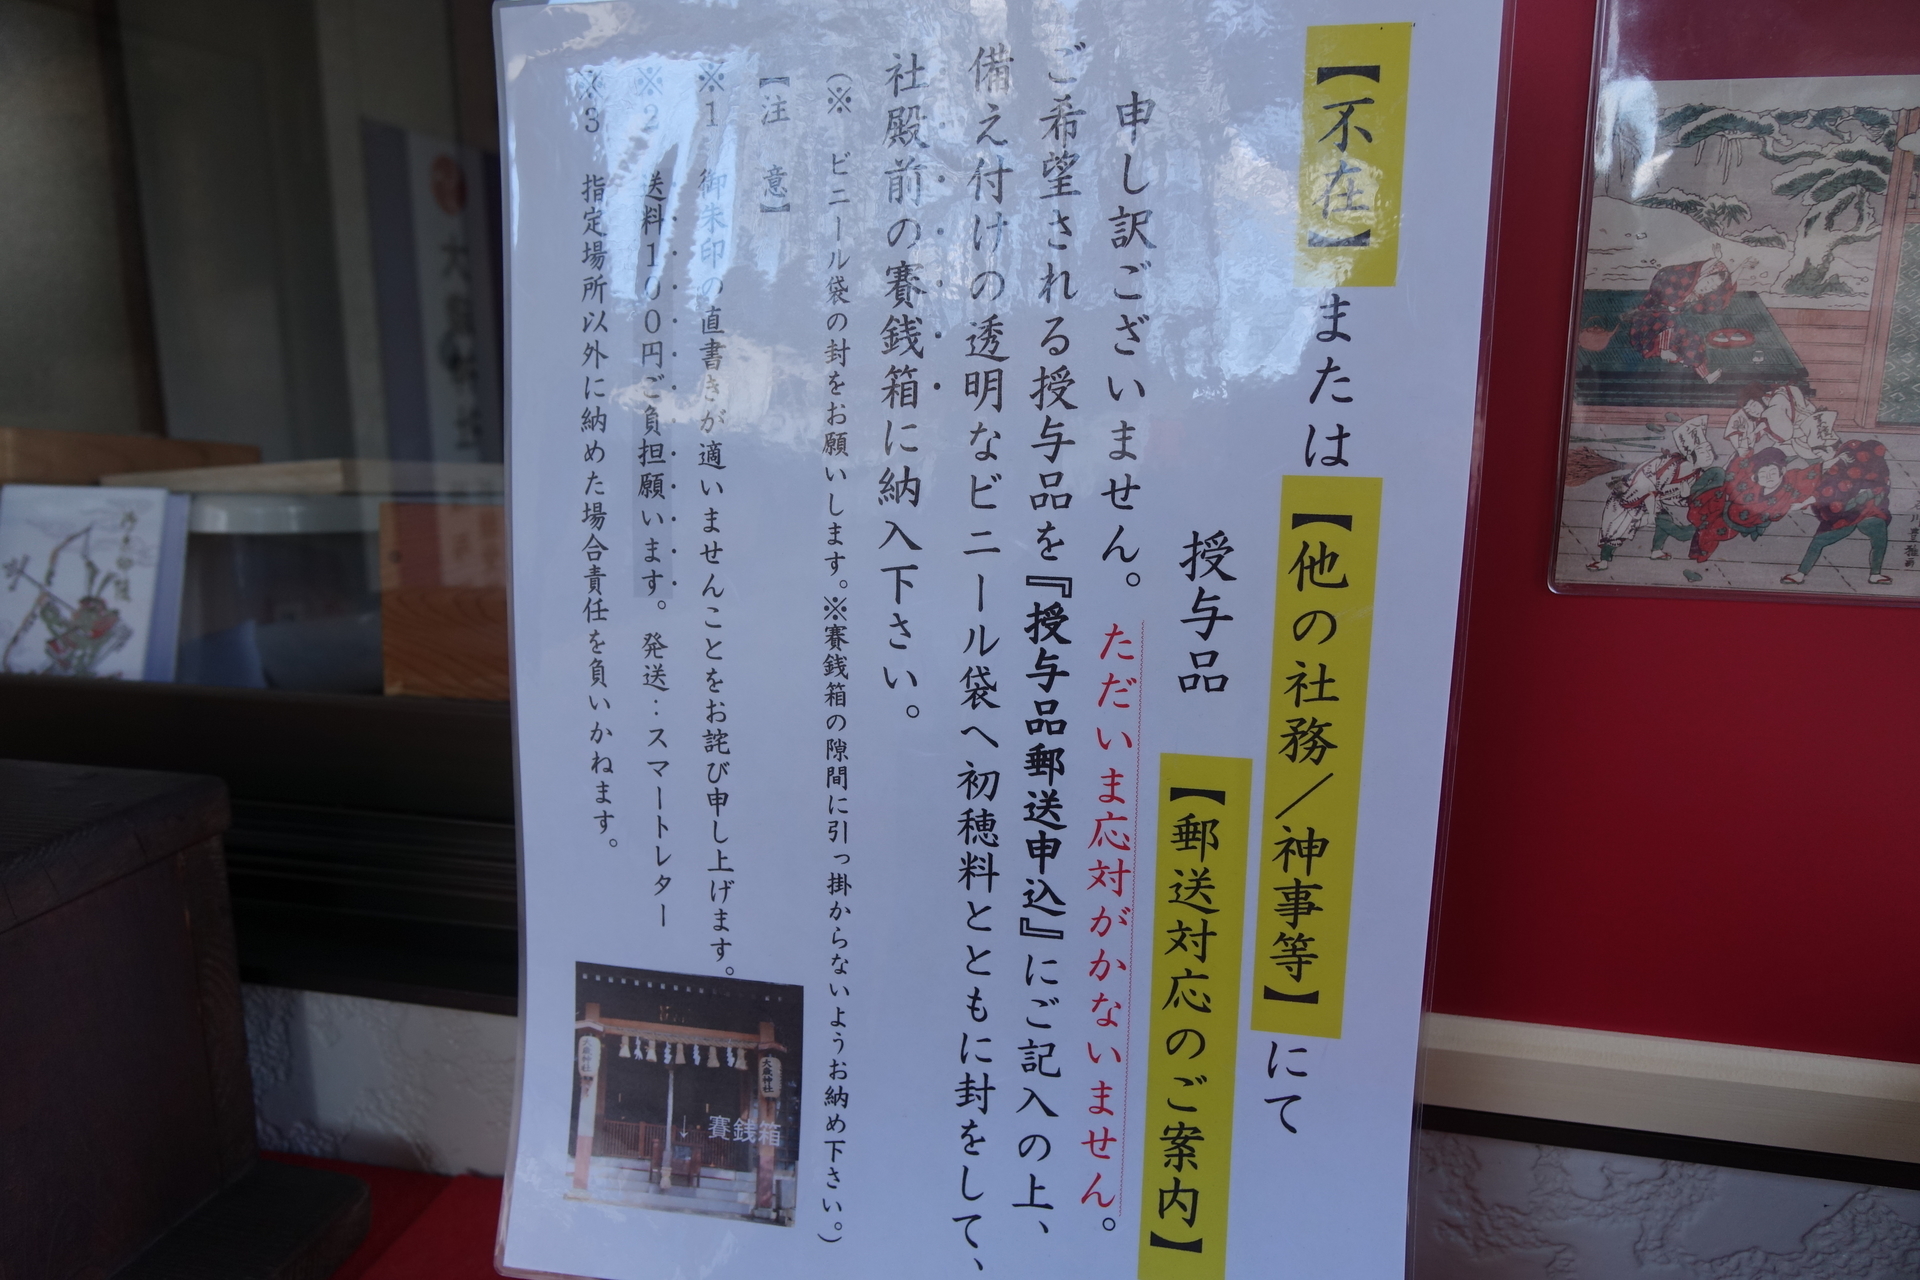 【不在】または【他の社務／神事等】にて
授与品 【郵送対応のご案内】
申し訳ございません。ただいま応対がかないません。
ご希望される授与品を『授与品郵送申込』にご記入の上、
備え付けの透明なビニール袋へ初穂料とともに封をして、
社殿前の賽銭箱に納入下さい。
（※ ビニール袋の封をお願いします。※賽銭箱の隙間に引っ掛からないようお納め下さい。）
【注 意】
※１ 御朱印の直書きが適いませんことをお詫び申し上げます。
※２ 送料１００円ご負担願います。発送：スマートレター
※３ 指定場所以外に納めた場合責任を負いかねます。
大歳神社
大歳神社
↓ 賽銭箱